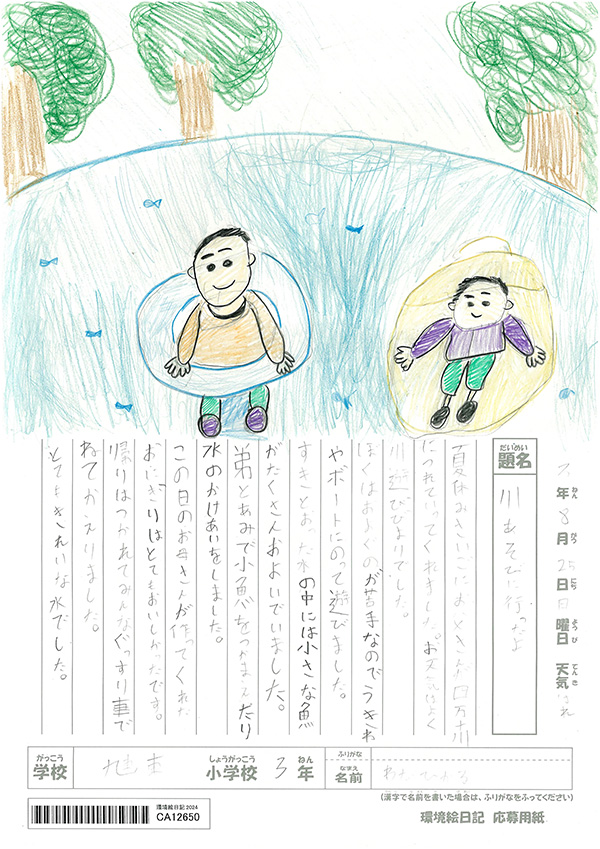 年 8月 25日 日曜日 天気
題名 川あそびに行ったよ
夏休みさいごにお
につれていってくれました。お天気もよく
川遊びびよりでした。
ぼくはおよぐのが苦手なのでうきわ
やボートにのって遊びました。
すきとおった水の中には小さな魚
がたくさんおよいでいました。
弟とあみで小魚をつかまえたり
水のかけあいをしました。
この日のお母さんが作ってくれた
おにぎりはとてもおいしかったです。
帰りはつかれてみんなぐっすり車で
ねてかえりました。
とてもきれいな水でした。
がっこう 学校
しょうがっこう 小学校 3年
ふりがな
なまえ 名前
(漢字で名前を書いた場合は、ふりがなをふってください)
環境絵日記 2024
CA12650
環境絵日記 応募用紙